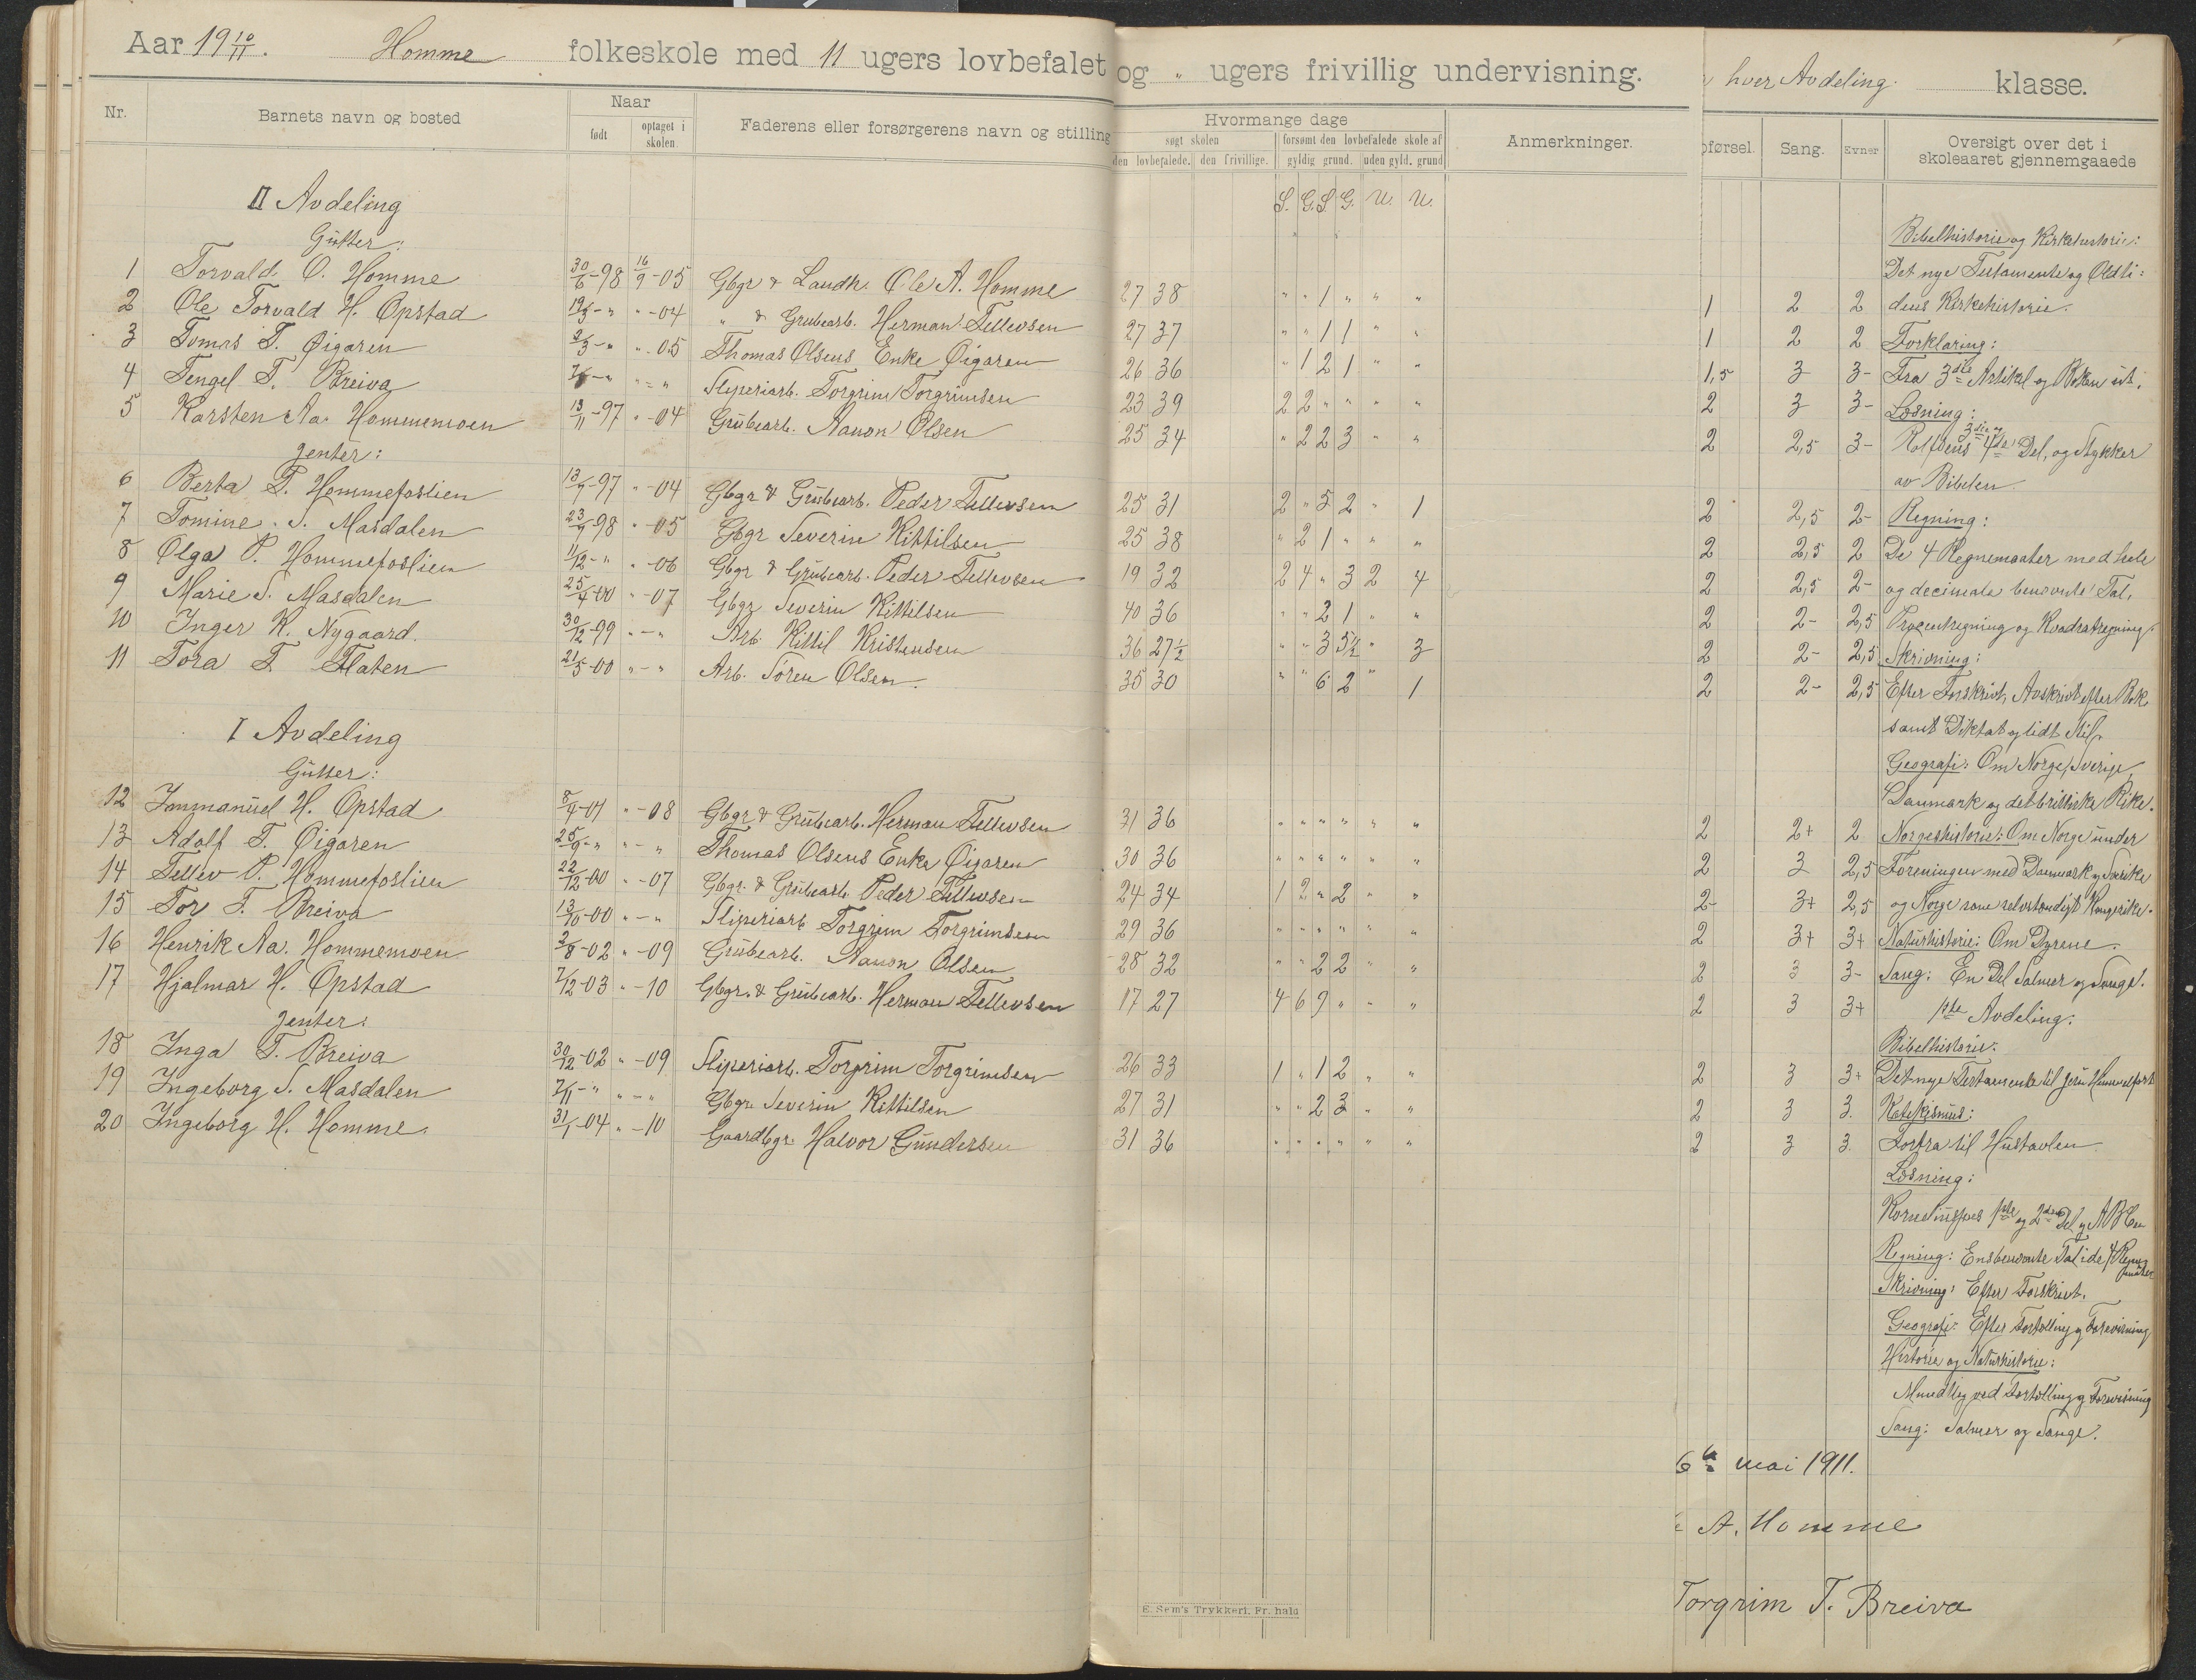 Aar 19 10/11. Homme folkeskole med 11 ugers lovbefalet og " ugers frivillig undervisning.
Nr. Barnets navn og bosted Naar født optaget i skolen. Faderens eller forsørgerens navn og stilling
Hvormange dage Anmerkninger.
søgt skolen forsømt den lovbefalede skole af
den lovbefalede. den frivillige. gyldig grund. uden gyld. grund
S. G. S. G. U. U.
II Avdeling
Gutter:
1 Torvald O. Homme 30/6-98 16/9-05 Gbgr & Landh. Ole A. Homme 27 38 " " 1 " " "
2 Ole Torvald H. Opstad 19/3-" "-04 " & Grubearb. Herman Tellevsen 27 37 " " 1 1 " "
3 Tomas T. Øigaren 2/3-" "-05 Thomas Olsens Enke Øigaren 26 36 " 1 2 1 " "
4 Tengel T. Breiva "-" Sliperiarb. Torgrim Torgrimsen 23 39 2 2 " " " "
5 Karsten Aa. Hommemoen 13/11-97 "-04 Grubearb. Aanon Olsen 25 34 " 2 2 3 " "
Jenter:
6 Berta P. Hommefoslien 13/7-97 "-04 Gbgr & Grubearb. Peder Tellevsen 25 31 2 " 5 2 " 1
7 Tomine S. Masdalen 23/7-98 "-05 Gbgr Severin Kittilsen 25 38 " 2 1 " " "
8 Olga P. Hommefoslien 11/12-" "-06 Gbgr & Grubearb. Peder Tellevsen 19 32 2 4 " 3 2 4
9 Marie S. Masdalen 25/4-00 "-07 Gbgr Severin Kittilsen 40 36 " " 2 1 " "
10 Inger K. Nygaard. 30/12-99 "-" Arb. Kittil Kristensen 36 27½ " " 3 5½ " 3
11 Tora S. Flaten 21/5-00 "-" Arb. Søren Olsen. 35 30 " " 6 2 " 1
I Avdeling
Gutter:
12 Immanuel H. Opstad 8/4-01 "-08 Gbgr & Grubearb. Herman Tellevsen 31 36 " " " " " "
13 Adolf T. Øigaren 25/9-" "-" Thomas Olsens Enke Øigaren 30 36 " " " " " "
14 Tellev P. Hommefoslien 22/12-00 "-07 Gbgr. & Grubearb. Peder Tellevsen 24 34 1 2 " 2 " "
15 Tor T. Breiva 13/10-00 "-" Sliperiarb Torgrim Torgrimsen 29 36 " " " " " "
16 Henrik Aa. Hommemoen 2/8-02 "-09 Grubearb. Aanon Olsen 28 32 " " 2 2 " "
17 Hjalmar H. Opstad 7/12-03 "-10 Gbgr. & Grubearb. Herman Tellevsen 17 27 4 6 9 " " "
Jenter:
18 Inga T. Breiva 30/12-02 "-09 Sliperiarb. Torgrim Torgrimsen 26 33 1 " 1 2 " "
19 Ingeborg S. Masdalen 7/11-" "-" Gbgr Severin Kittilsen 27 31 " " 2 3 " "
20 Ingeborg H. Homme. 31/1-04 "-10 Gaardbgr. Halvor Gundersen 31 36 " " " " " "
E. Sem's Trykkeri, Fr.hald
hver Avdeling. klasse.
førsel. Sang. Evner Oversigt over det i skoleaaret gjennemgaaede
Bibelhistorie og Kirkehistorie:
Det nye Testamente og Oldti=
1 2 2 dens Kirkehistorie.
1 2 2 Forklaring:
1,5 3 3- Fra 3die Artikel og Boken ut.
2 3 3- Læsning:
2 2,5 3- Rolfsens 3die og 4de Del, og Stykker
av Bibelen.
2 2,5 2- Regning:
2 2,5 2 De 4 Regnemaater med hele
2 2,5 2- og decimale benevnte Tal,
2 2- 2,5 Procentregning og Kvadratregning.
2 2- 2,5 Skrivning:
2 2- 2,5 Efter Forskrivt, Avskrivt efter Bok
samt Diktat og lidt Stil.
Geografi: Om Norge, Sverige,
Danmark og det brittiske Rike.
2 2+ 2 Norgeshistorie: Om Norge under
2 3 2,5 Foreningen med Danmark og Sverike
2- 3+ 2,5 og Norge som selvstændigt Kongerike.
2 3+ 3+ Naturhistorie: Om Dyrene.
2 3 3- Sang: En Del Salmer og Sange.
2 3 3+ 1ste Avdeling:
Bibelhistorie:
2 3 3+ Det nye Testamente til Jesu Himmelfart
2 3 3. Katekismus:
2 3 3. Forfra til Hustavlen
Læsning:
1ste og 2den Del og ABCen
Regning: Ensbenevnte Tal i de 4 Regnemaater
Skrivning: Efter Forskrivt.
Geografi: Efter Fortælling og Forevisning
Historie og Naturhistorie:
Mundtlig ved Fortælling og Forevisning
Sang: Salmer og Sange.
6te mai 1911.
A. Homme
Torgrim T. Breiva